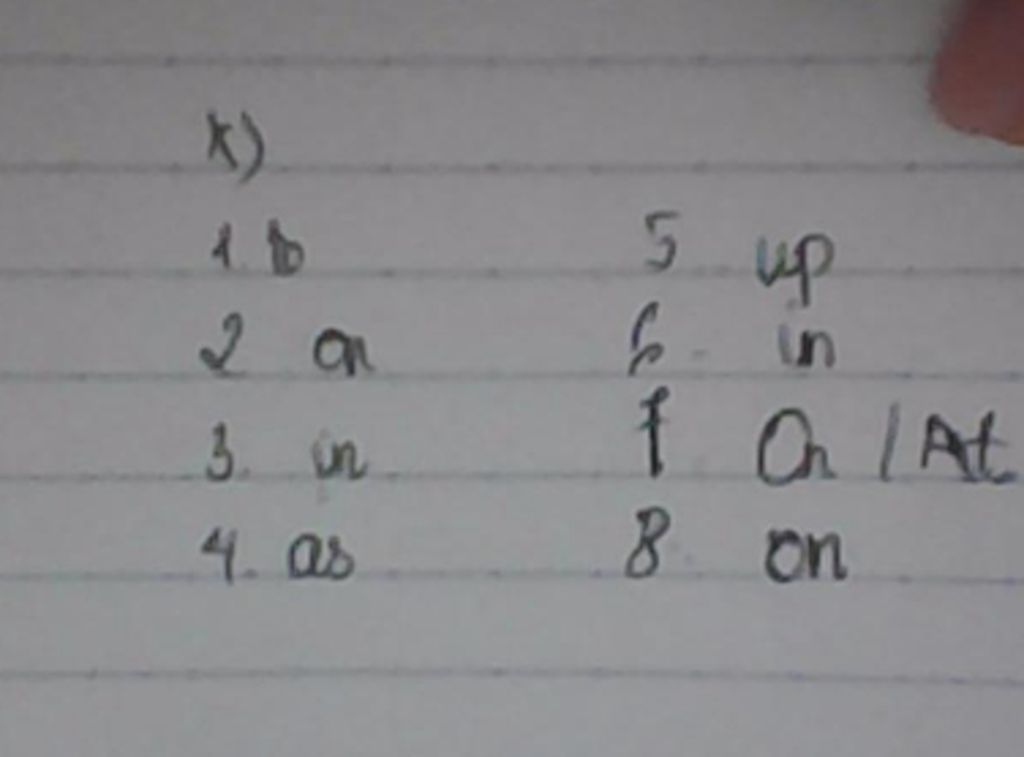 K)
1. to
2 on
3. in
4. as
5 up
6. in
7 On / At
8. on